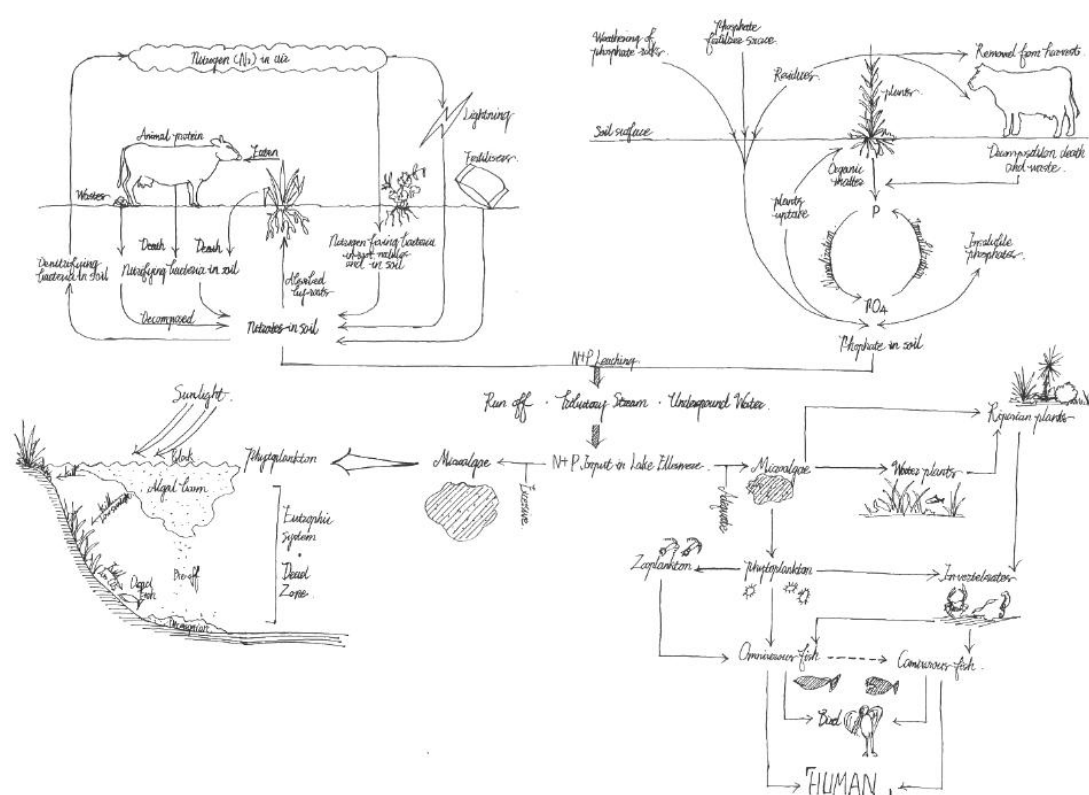 Nitrogen (N₂) in air
Lightning
Animal protein
Eaten
Fertilisers
Wastes
Death
Death
Denitrifying
bacteria in soil
Nutrifying bacteria in soil
Nitrogen fixing bacteria
in root nodules
and in soil
Absorbed
by roots
Decomposed
Nitrates in soil
Weathering of
phosphate rocks
Phosphate
fertilizer source
Residues
Removed from harvests
plants
Soil surface
Decomposition death
and waste
Organic
matter
plants
uptake
P
Mineralization
Immobilization
Insoluble
phosphates
PO₄
Phosphate in soil
N+P Leaching
Run off · Tributary Stream · Underground Water
N+P Input in Lake Ellesmere
Excessive
Adequate
Microalgae
Phytoplankton
Sunlight
Block
Algal bloom
Die-off
Dead
fish
Eutrophic
System
Dead
Zone
Microalgae
Water plants
Riparian plants
Zooplankton
Phytoplankton
Invertebrates
Omnivorous fish
Carnivorous fish
Bird
HUMAN